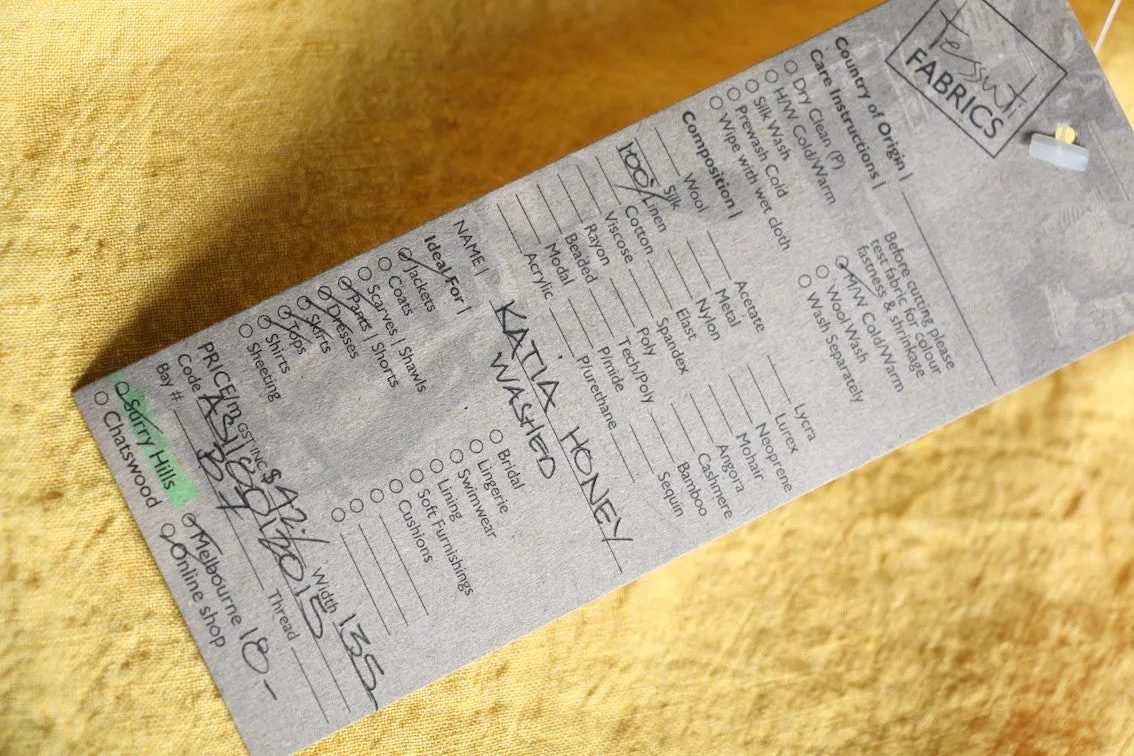 Tessuti
FABRICS
Country of Origin |
Care Instructions |
Dry Clean (P)
H/W Cold/Warm
Silk Wash
Prewash Cold
Wipe with wet cloth
Before cutting please
test fabric for colour
fastness & shrinkage
M/W Cold/Warm
Wool Wash
Wash Separately
Composition |
Wool
Silk
100% Linen
Cotton
Viscose
Rayon
Beaded
Modal
Acrylic
Acetate
Metal
Nylon
Elast
Spandex
Poly
Tech/Poly
P/mide
P/urethane
Lycra
Lurex
Neoprene
Mohair
Angora
Cashmere
Bamboo
Sequin
NAME | KATIA HONEY
WASHED
Ideal For |
Jackets
Coats
Scarves | Shawls
Pants | Shorts
Dresses
Skirts
Tops
Shirts
Sheeting
Bridal
Lingerie
Swimwear
Lining
Soft Furnishings
Cushions
PRICE/m GST INC $ 42/ Width 135
Code
Bay # Thread
Surry Hills Melbourne 18-
Chatswood Online shop